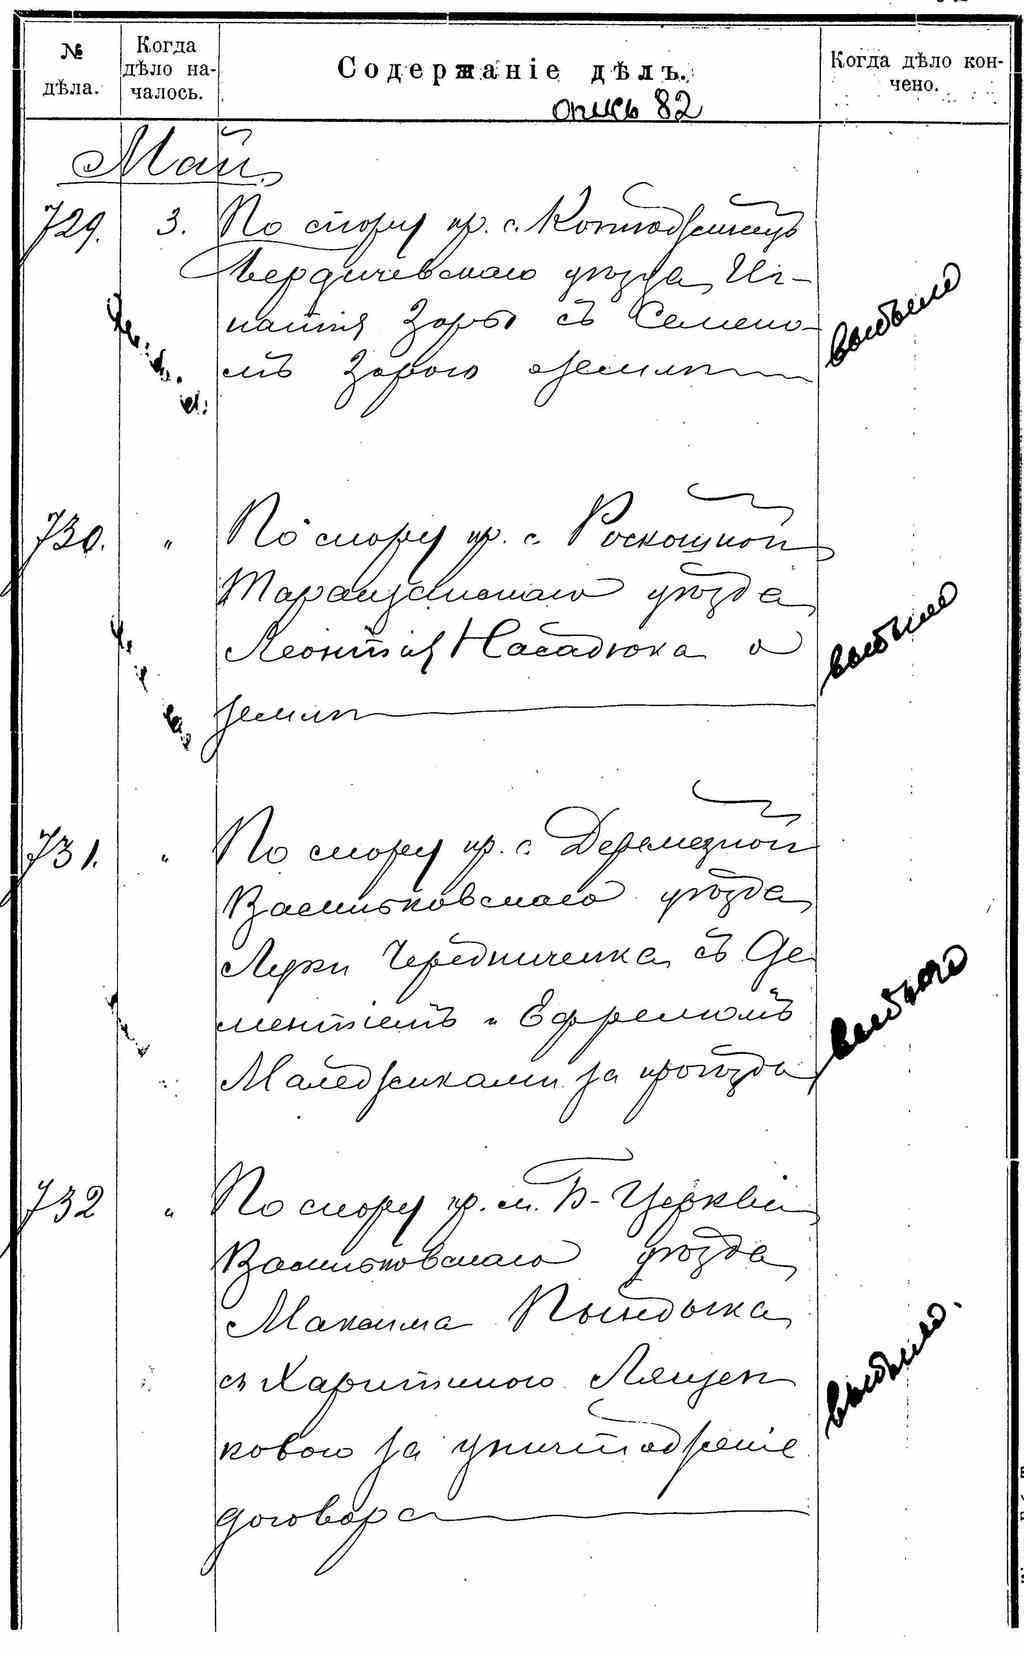 № дѣла.
Когда дѣло началось.
Содержаніе дѣлъ.
Когда дѣло кончено.
опись 82
Май
729. 3. По спору кр. с.
Бердичевскаго уѣзда Иг-
натія Зоры съ Семено-
мъ Зорою о земли
выбыло
730. " По спору кр. с. Роскошной
Таращанскаго уѣзда
Леонтія Насадюка о
земли
выбыло
731. " По спору кр. с. Деремезной
Васильковскаго уѣзда
Луки Чередниченка съ Де
ментіемъ и Ефремомъ
за проѣзда
выбыло
732 " По спору кр. м. Б-Церкви
Васильковскаго уѣзда
Максима Пындыка
съ Харитиною Лящен
ковою за уничтоженіе
договора
выбыло.